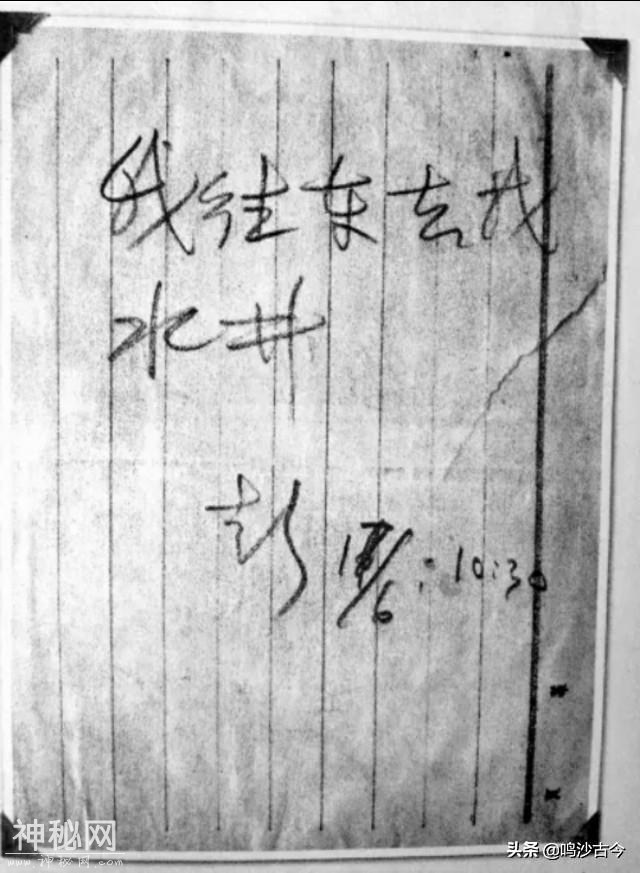 我往东去找
水井
彭 17/6: 10:30
神秘网
www.神秘网.com
头条 @鸣沙古今